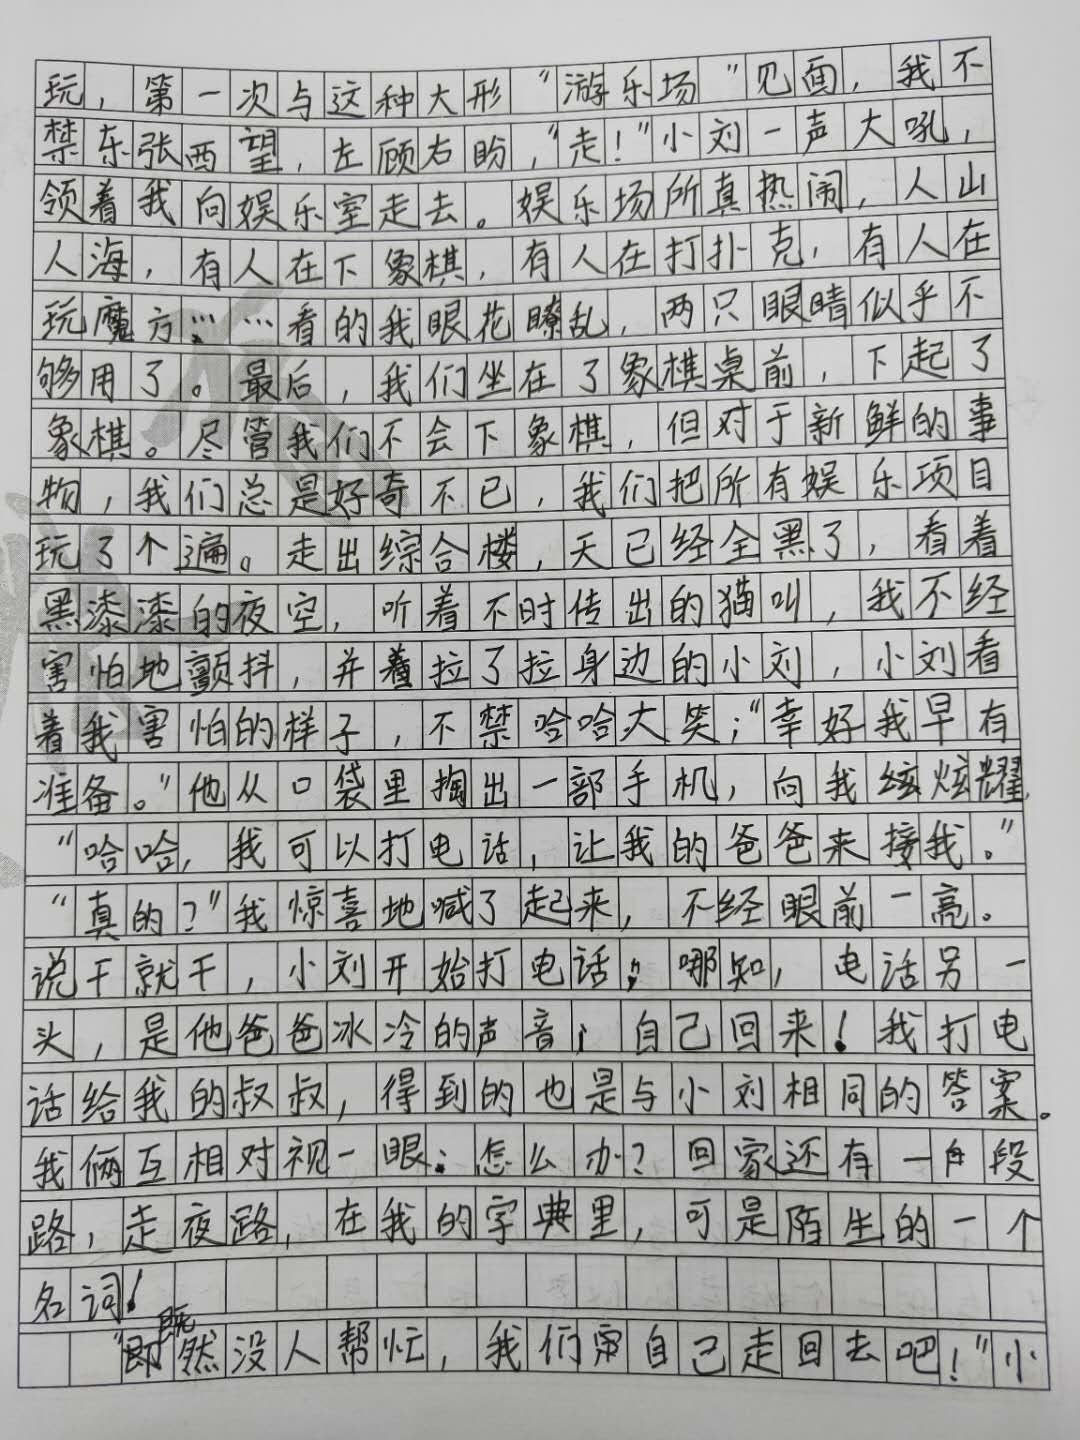 玩，第一次与这种大形“游乐场”见面，我不
禁东张西望，左顾右盼，“走！”小刘一声大吼，
领着我向娱乐室走去。娱乐场所真热闹，人山
人海，有人在下象棋，有人在打扑克，有人在
玩魔方……看的我眼花瞭乱，两只眼睛似乎不
够用了。最后，我们坐在了象棋桌前，下起了
象棋。尽管我们不会下象棋，但对于新鲜的事
物，我们总是好奇不已，我们把所有娱乐项目
玩了个遍。走出综合楼，天已经全黑了，看着
黑漆漆的夜空，听着不时传出的猫叫，我不经
害怕地颤抖，并着拉了拉身边的小刘，小刘看
着我害怕的样子，不禁哈哈大笑；“幸好我早有
准备。”他从口袋里掏出一部手机，向我炫耀
“哈哈，我可以打电话，让我的爸爸来接我。”
“真的？”我惊喜地喊了起来，不经眼前一亮。
说干就干，小刘开始打电话；哪知，电话另一
头，是他爸爸冰冷的声音；自己回来！我打电
话给我的叔叔，得到的也是与小刘相同的答案。
我俩互相对视一眼：怎么办？回家还有一段
路，走夜路，在我的字典里，可是陌生的一个
名词！
“既然没人帮忙，我们自己走回去吧！”小